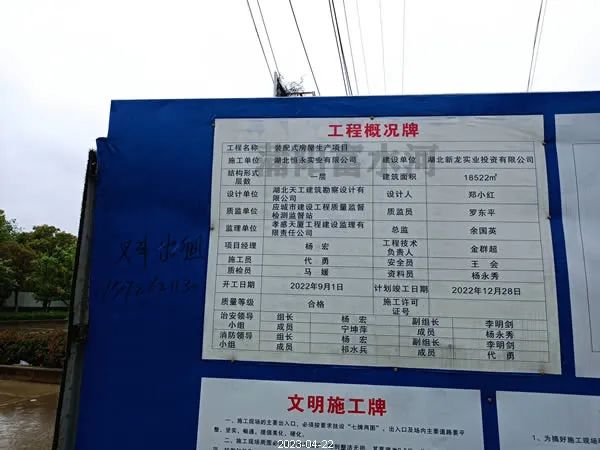 工程概况牌
工程名称 装配式房屋生产项目
施工单位 湖北恒永实业有限公司 建设单位 湖北新龙实业投资有限公司
结构形式层数 一层 建筑面积 18522㎡
设计单位 湖北天工建筑勘察设计有限公司 设计人 郑小红
质监单位 应城市建设工程质量监督检测监督站 质监员 罗东平
监理单位 孝感天厦工程建设监理有限责任公司 总监 余国英
项目经理 杨宏 工程技术负责人 金群超
施工员 代勇 安全员 王会
质检员 马媛 资料员 杨永秀
开工日期 2022年9月1日 计划竣工日期 2022年12月28日
质量等级 合格 施工许可证号
治安领导小组 组长 杨宏 副组长 李明剑
成员 宁坤萍 成员 杨永秀
消防领导小组 组长 杨宏 副组长 李明剑
成员 祁水兵 成员 代勇
叉车出租
文明施工牌
一、施工现场的主要出入口，必须按要求挂设“七牌两图”，出入口及场内主要道路要平
整、坚实、畅通，提倡美化、硬化。
二、施工现场周围必
1、为搞好施工现场
2023-04-22